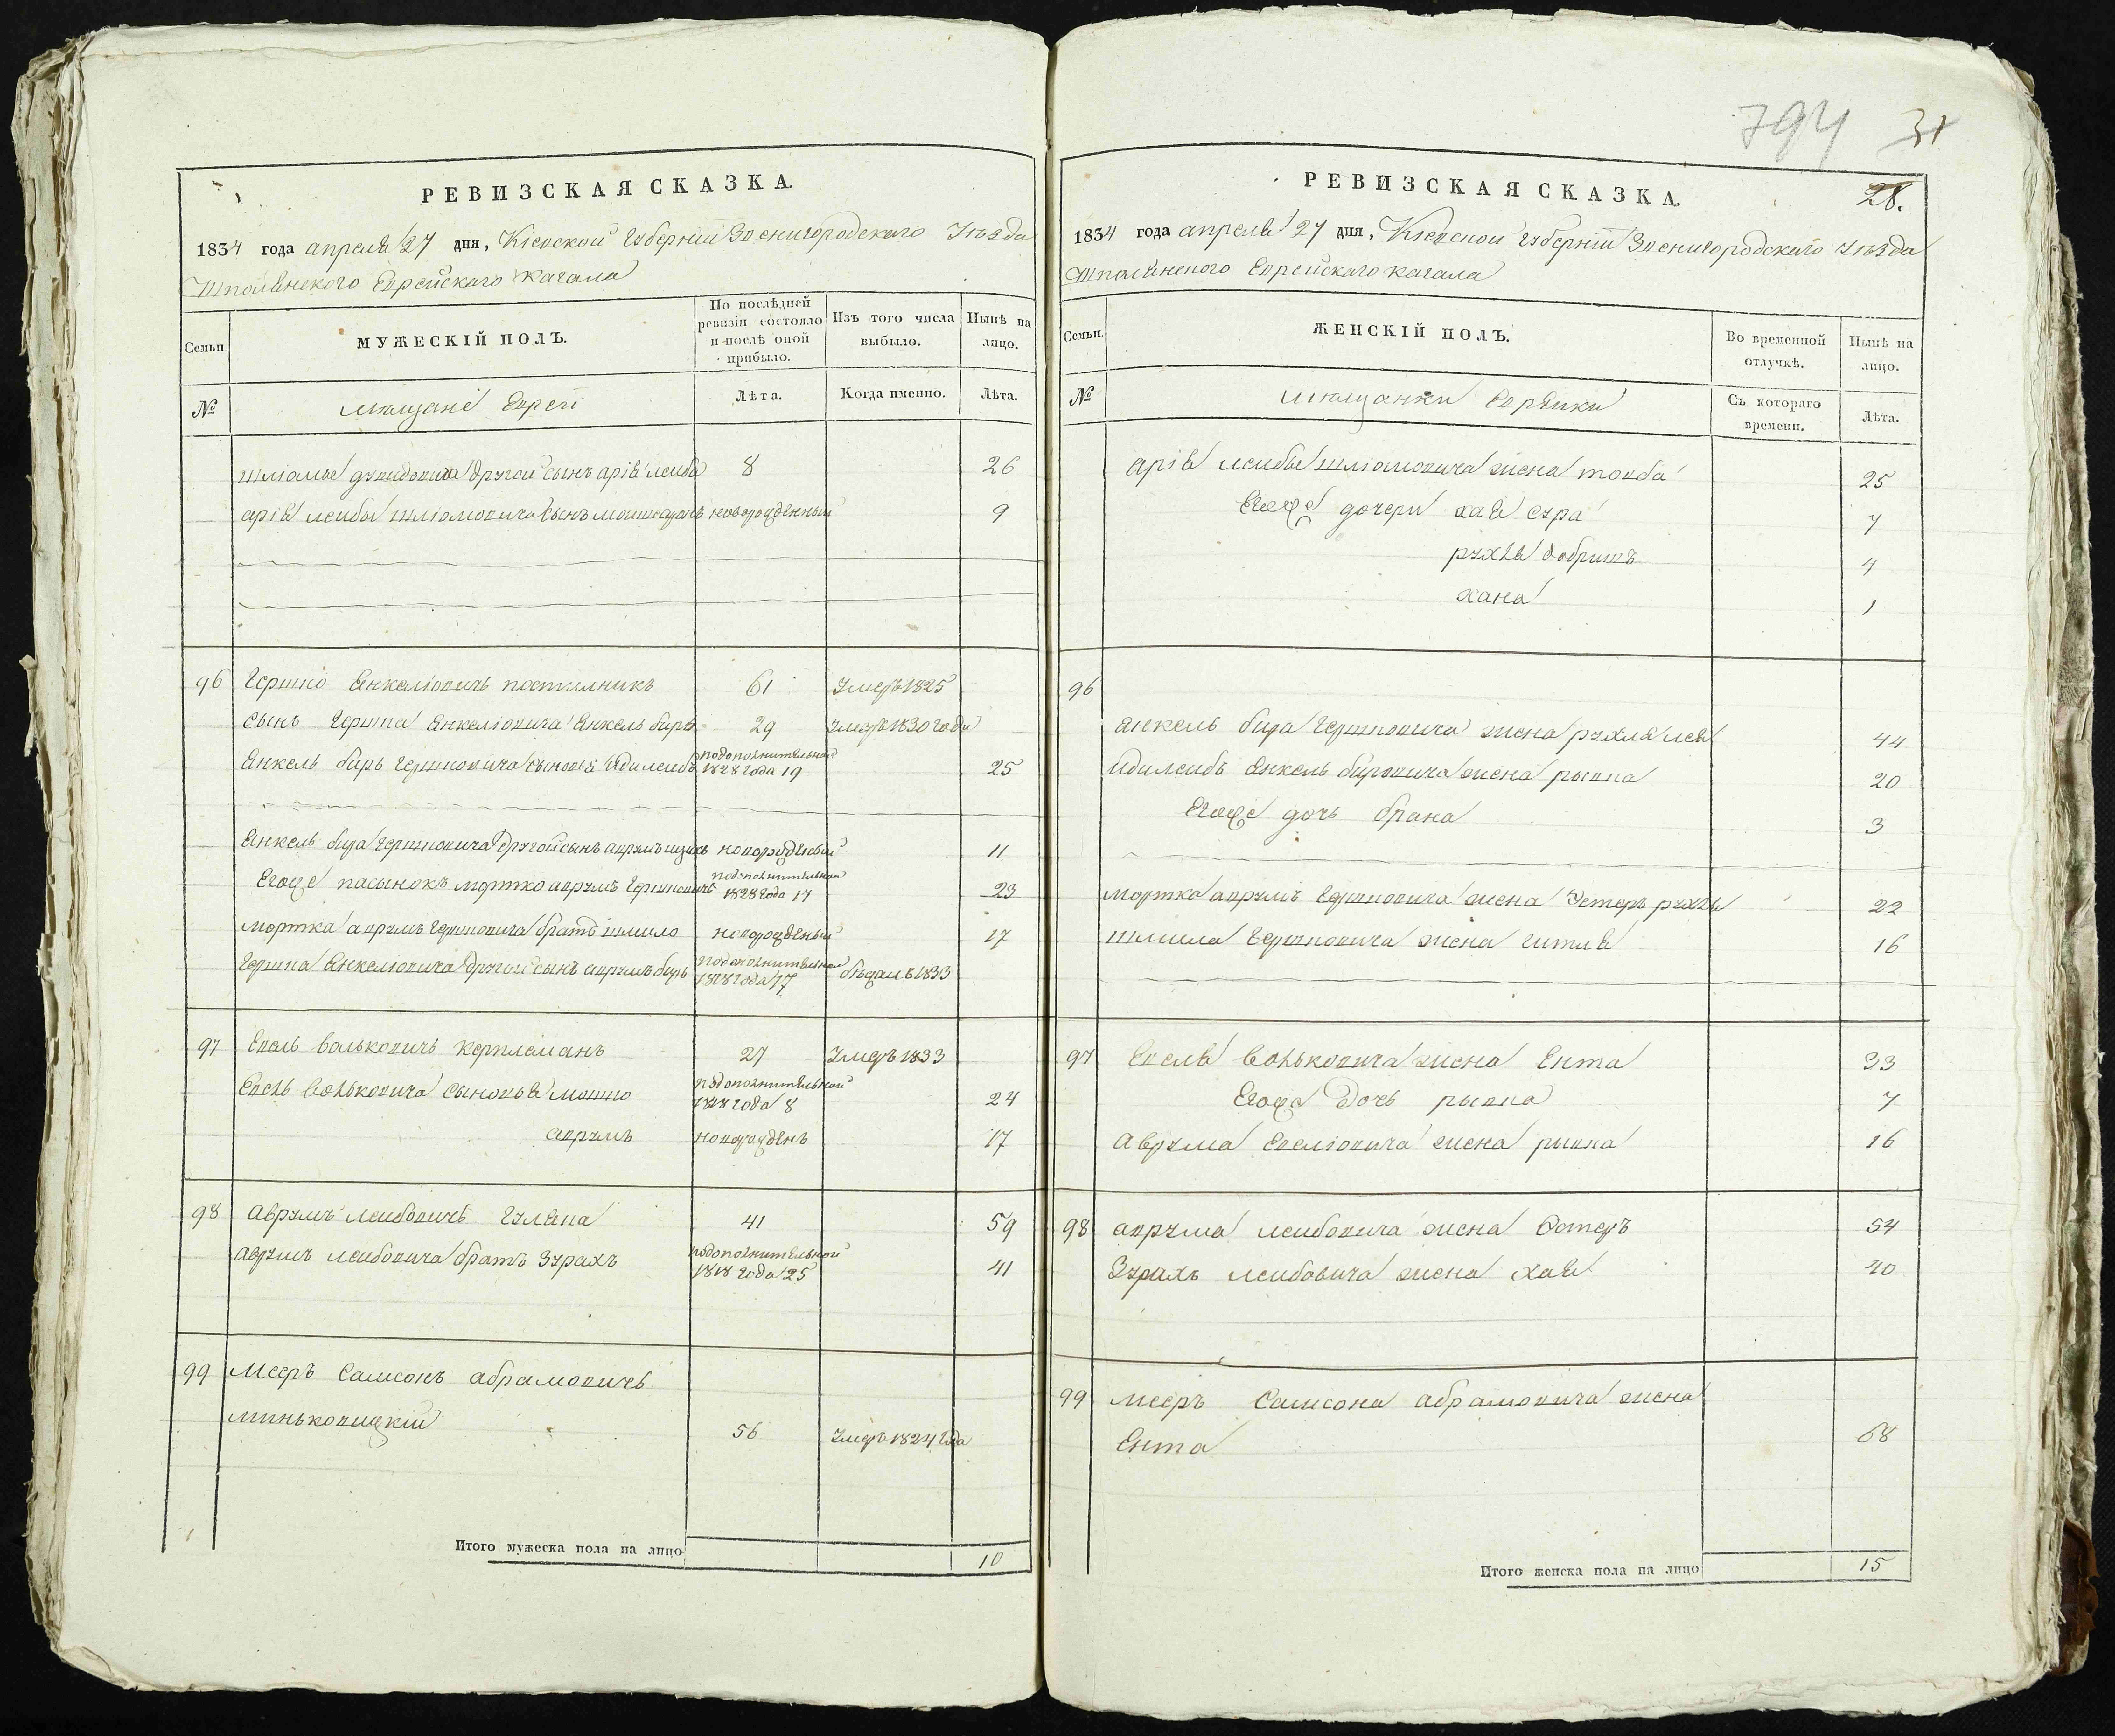 РЕВИЗСКАЯ СКАЗКА.
1834 года апреля 27 дня, Кіевской Губерніи Звенигородского Уѣзда
Шполянского Еврейского Кагала
Семьи
МУЖЕСКІЙ ПОЛЪ.
По послѣдней ревизіи состояло и послѣ оной прибыло.
Изъ того числа выбыло.
Нынѣ на лицо.
№
мещане Евреи
Лѣта.
Когда именно.
Лѣта.
другой сынъ арія лейба 8 26
арія лейбы шліомовича сынъ новорожденный 9
96 Гершко Янкеліовичъ 61 Умеръ 1825
сынъ Гершка Янкеліовича Янкель биръ 29 Умеръ 1830 года
Янкель биръ Гершковича сыновья Идилейбъ подополнительной 1828 года 19 25
Янкель бира Гершковича другой сынъ аврумъ новорожденый 11
Егоже пасынокъ мортко аврумъ Гершковичъ подополнительной 1828 года 17 23
мортка аврумъ Гершковича братъ шмило новорожденый 17
Гершка Янкеліовича другой сынъ аврумъ биръ подополнительной 1818 года 17 1833
97 Евель Волькович 27 Умеръ 1833
Евель Вольковича сыновья мошко подополнительной 1818 года 8 24
аврумъ новорожденъ 17
98 Аврумъ лейбовичъ Гуляна 41 59
Аврумъ лейбовича братъ Зурахъ подополнительной 1818 года 25 41
99 Мееръ Самсонъ абрамовичъ
миньковицкій 56 Умеръ 1824 года
Итого мужеска пола на лицо 10
794 31
РЕВИЗСКАЯ СКАЗКА.
28.
1834 года апреля 27 дня, Кіевской Губерніи Звенигородского Уѣзда
Шполянского Еврейскаго кагала
Семьи.
ЖЕНСКІЙ ПОЛЪ.
Во временной отлучкѣ.
Нынѣ на лицо.
№
мещанки Еврейки
Съ котораго времени.
Лѣта.
арія лейбы шліомовича жена товба 25
Егоже дочери хая сура 7
рухля добришъ 4
хана 1
96
янкель бира Гершковича жена рухля лея 44
Идилейбъ Янкель бировича жена рывка 20
Егоже дочь брана 3
мортка аврумъ Гершковича жена Эстеръ рухля 22
шмила Гершковича жена гитля 16
97 Евеля Вольковича жена Ента 33
Егоже Дочь рывка 7
Аврума Евеліовича жена рывка 16
98 аврума лейбовича жена Эстеръ 54
Зурахъ лейбовича жена хая 40
99 мееръ Самсона абрамовича жена
Ента 68
Итого женска пола на лицо 15